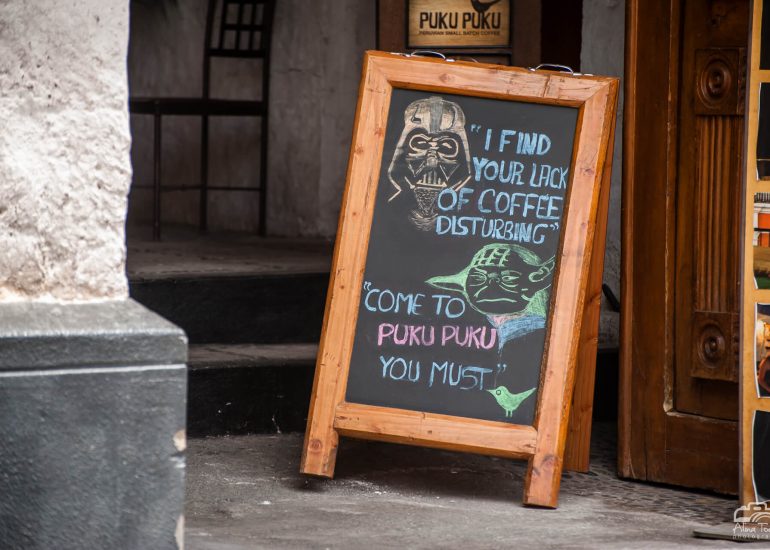 PUKU PUKU
PERUVIAN SMALL BATCH COFFEE
"I FIND
YOUR LACK
OF COFFEE
DISTURBING"
"COME TO
PUKU PUKU
YOU MUST"